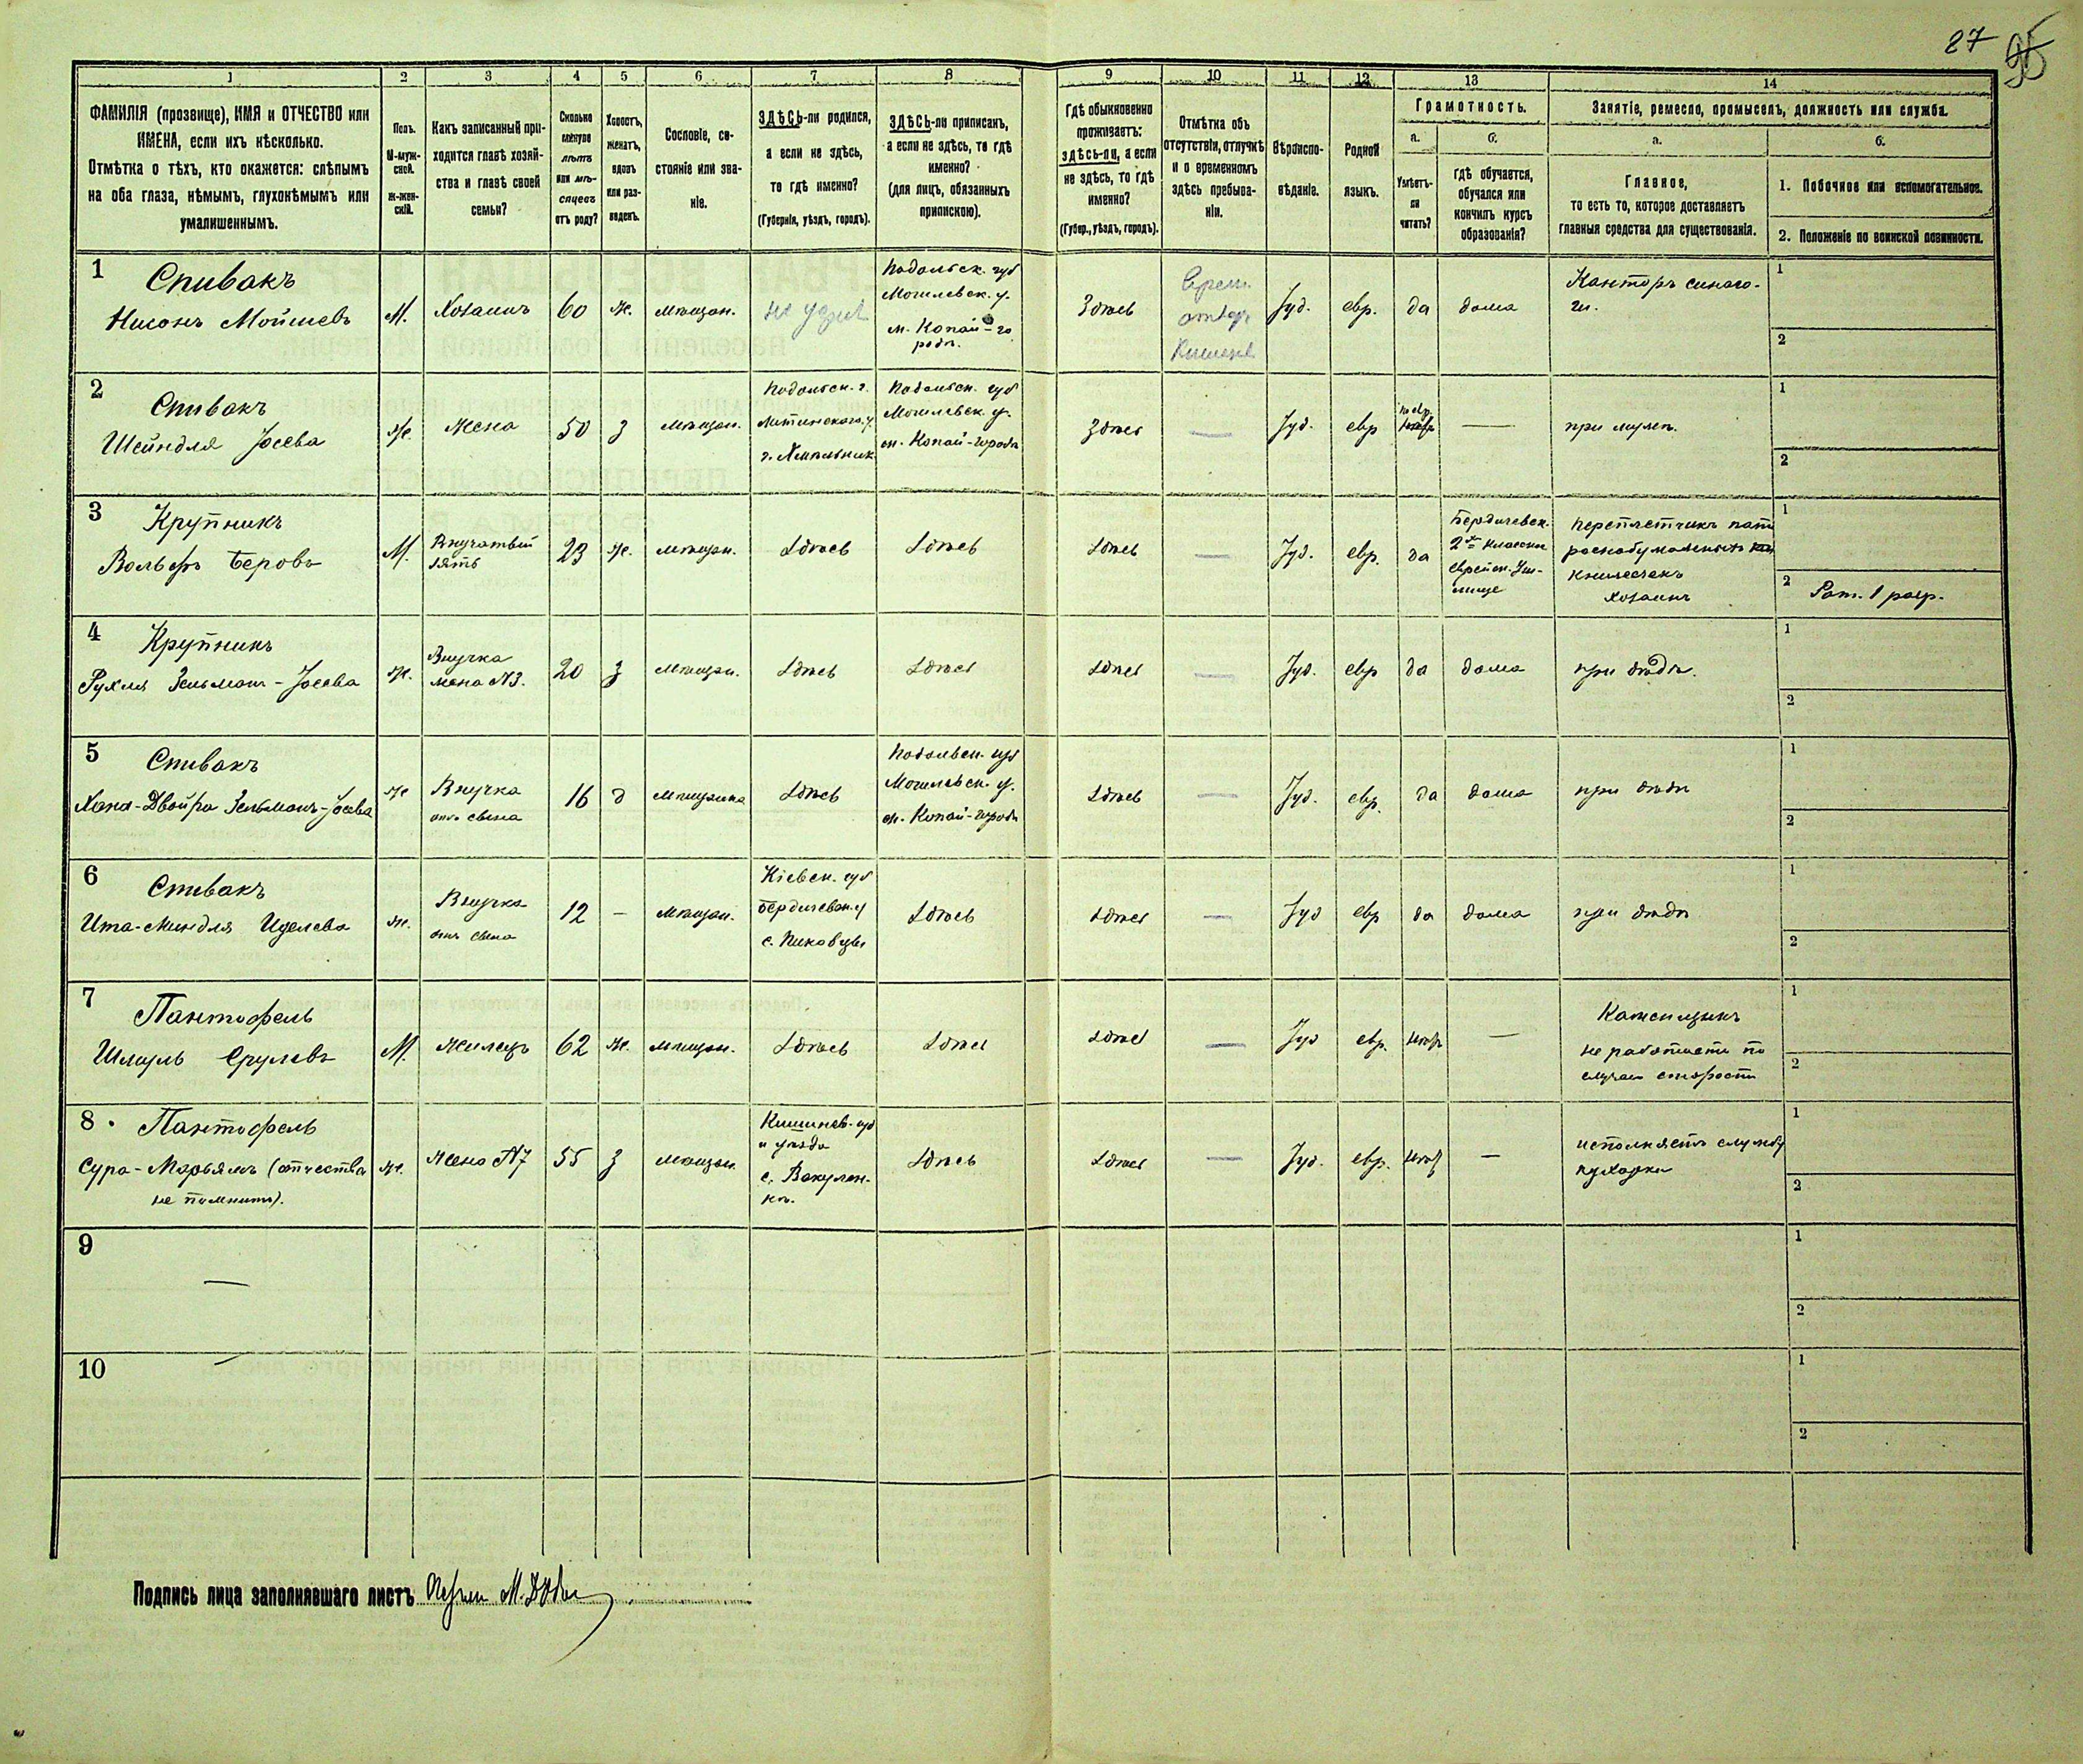 27 95
1 2 3 4 5 6 7 8 9 10 11 12 13 14
ФАМИЛІЯ (прозвище), ИМЯ и ОТЧЕСТВО или
ИМЕНА, если ихъ нѣсколько.
Отмѣтка о тѣхъ, кто окажется: слѣпымъ
на оба глаза, нѣмымъ, глухонѣмымъ или
умалишеннымъ.
Полъ.
М-муж-
ской.
Ж-жен-
скій.
Какъ записанный при-
ходится главѣ хозяй-
ства и главѣ своей
семьи?
Сколько
минуло
лѣтъ
или мѣ-
сяцевъ
отъ роду?
Холостъ,
женатъ,
вдовъ
или раз-
веденъ.
Сословіе, со-
стояніе или зва-
ніе.
ЗДѢСЬ-ли родился,
а если не здѣсь,
то гдѣ именно?
(Губернія, уѣздъ, городъ).
ЗДѢСЬ-ли приписанъ,
а если не здѣсь, то гдѣ
именно?
(для лицъ, обязанныхъ
припискою).
Гдѣ обыкновенно
проживаетъ:
здѣсь-ли, а если
не здѣсь, то гдѣ
именно?
(Губер., уѣздъ, городъ).
Отмѣтка объ
отсутствіи, отлучкѣ
и о временномъ
здѣсь пребыва-
ніи.
Вѣроиспо-
вѣданіе.
Родной
языкъ.
Грамотность.
а.
Умѣетъ-
ли
читать?
б.
гдѣ обучается,
обучался или
кончилъ курсъ
образованія?
Занятіе, ремесло, промыселъ, должность или служба.
а.
Главное,
то есть то, которое доставляетъ
главныя средства для существованія.
б.
1. Побочное или вспомогательное.
2. Положеніе по воинской повинности.
1
Спивакъ
Нисонъ Мойшевъ
М.
Хозяинъ
60
ж.
мѣщан.
Подольск. губ
Могилевск. у.
м. Копай-го
родъ.
Здѣсь
Іуд.
евр.
да
дома
Канторъ синаго-
ги.
1
2
2
Спивакъ
Шейндля Іосева
ж.
Жена
50
з
мѣщан.
Подольск. г.
Литинского у.
г. Хмѣльник.
Подольск. губ
Могилевск. у.
м. Копай-городъ
Здѣсь
—
Іуд.
евр
—
при мужѣ.
1
2
3
Крупникъ
Вольфъ Беровъ
М.
Внучатый
зять
23
ж.
мѣщан.
здѣсь
здѣсь
здѣсь
—
Іуд.
евр.
да
Бердичевск.
2хъ классн
еврейск. Учи-
лище
Переплетчикъ папи
роснобумажныхъ
книжечекъ
хозяинъ
1
2 Рат. 1 разр.
4
Крупникъ
Рухля Зельманъ-Іосева
ж.
Внучка
жена №3.
20
з
мѣщан.
здѣсь
здѣсь
здѣсь
—
Іуд.
евр
да
дома
при дѣдѣ.
1
2
5
Спивакъ
Хана-Двойра Зельманъ-Іосева
ж
Внучка
отъ сына
16
д
мѣщанка
здѣсь
Подольск. губ
Могилевск. у.
м. Копай-городъ
здѣсь
—
Іуд.
евр.
да
дома
при дѣдѣ
1
2
6
Спивакъ
Ита-Миндля Иделева
ж.
Внучка
отъ сына
12
—
мѣщан.
Кіевск. губ
Бердичевск. у
с. Пиковцы
здѣсь
здѣсь
—
Іуд
евр
да
дома
при дѣдѣ
1
2
7
Пантофель
Шмуль Срулевъ
М.
Жилецъ
62
ж.
мѣщан.
здѣсь
здѣсь
здѣсь
—
Іуд
евр.
негр
—
Каменщикъ
не работаетъ по
случаю старости
1
2
8
Пантофель
Сура-Марьямъ (отчества
не помнитъ).
ж.
Жена №7
55
з
мѣщан.
Кишинев. губ
и уѣзда
с. Вакулен-
къ.
здѣсь
здѣсь
—
Іуд.
евр.
негр
—
исполняетъ службу
кухарки
1
2
9
—
1
2
10
1
2
Подпись лица заполнявшаго листъ